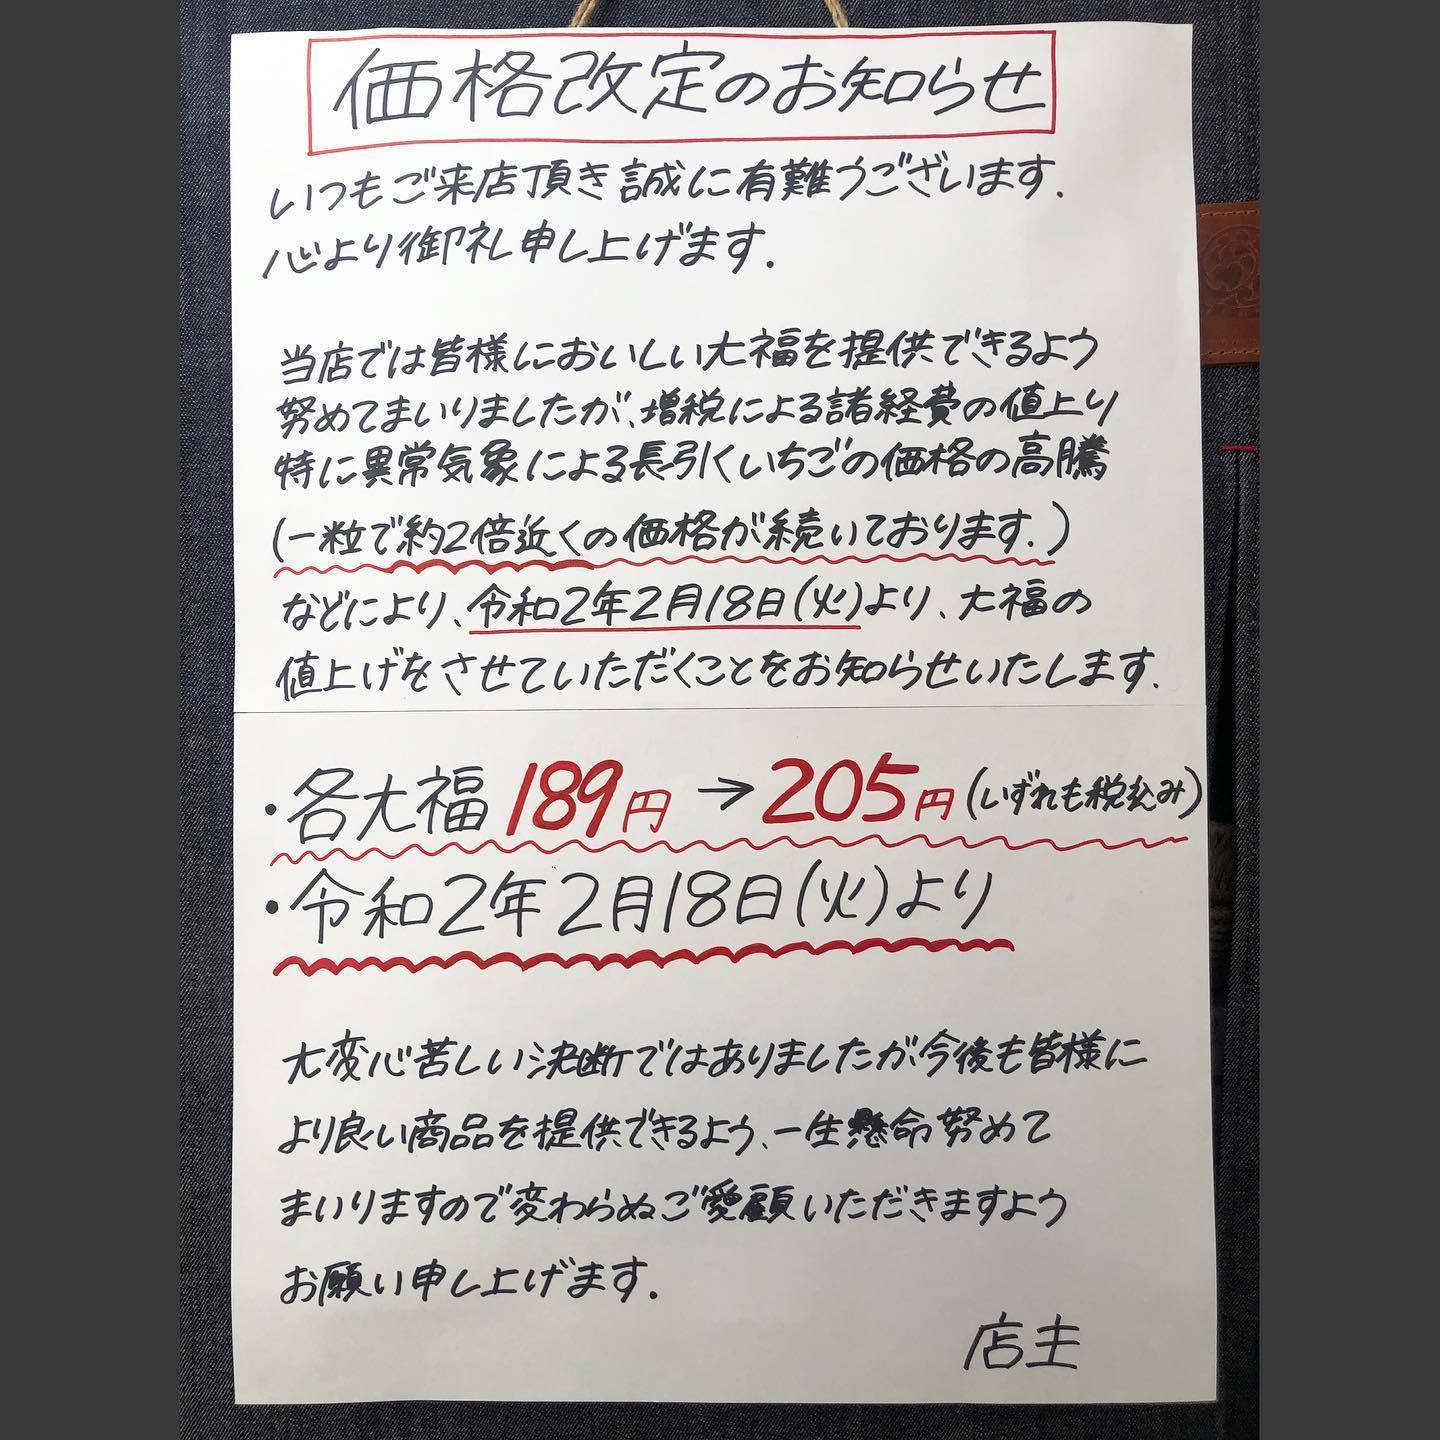 価格改定のお知らせ
いつもご来店頂き誠に有難うございます.
心より御礼申し上げます.
当店では皆様においしい大福を提供できるよう
努めてまいりましたが、増税による諸経費の値上り
特に異常気象による長引くいちごの価格の高騰
(一粒で約2倍近くの価格が続いております.)
などにより、令和2年2月18日(火)より、大福の
値上げをさせていただくことをお知らせいたします.
・各大福 189円 → 205円 (いずれも税込み)
・令和2年2月18日(火)より
大変心苦しい決断ではありましたが今後も皆様に
より良い商品を提供できるよう、一生懸命努めて
まいりますので変わらぬご愛顧いただきますよう
お願い申し上げます.
店主